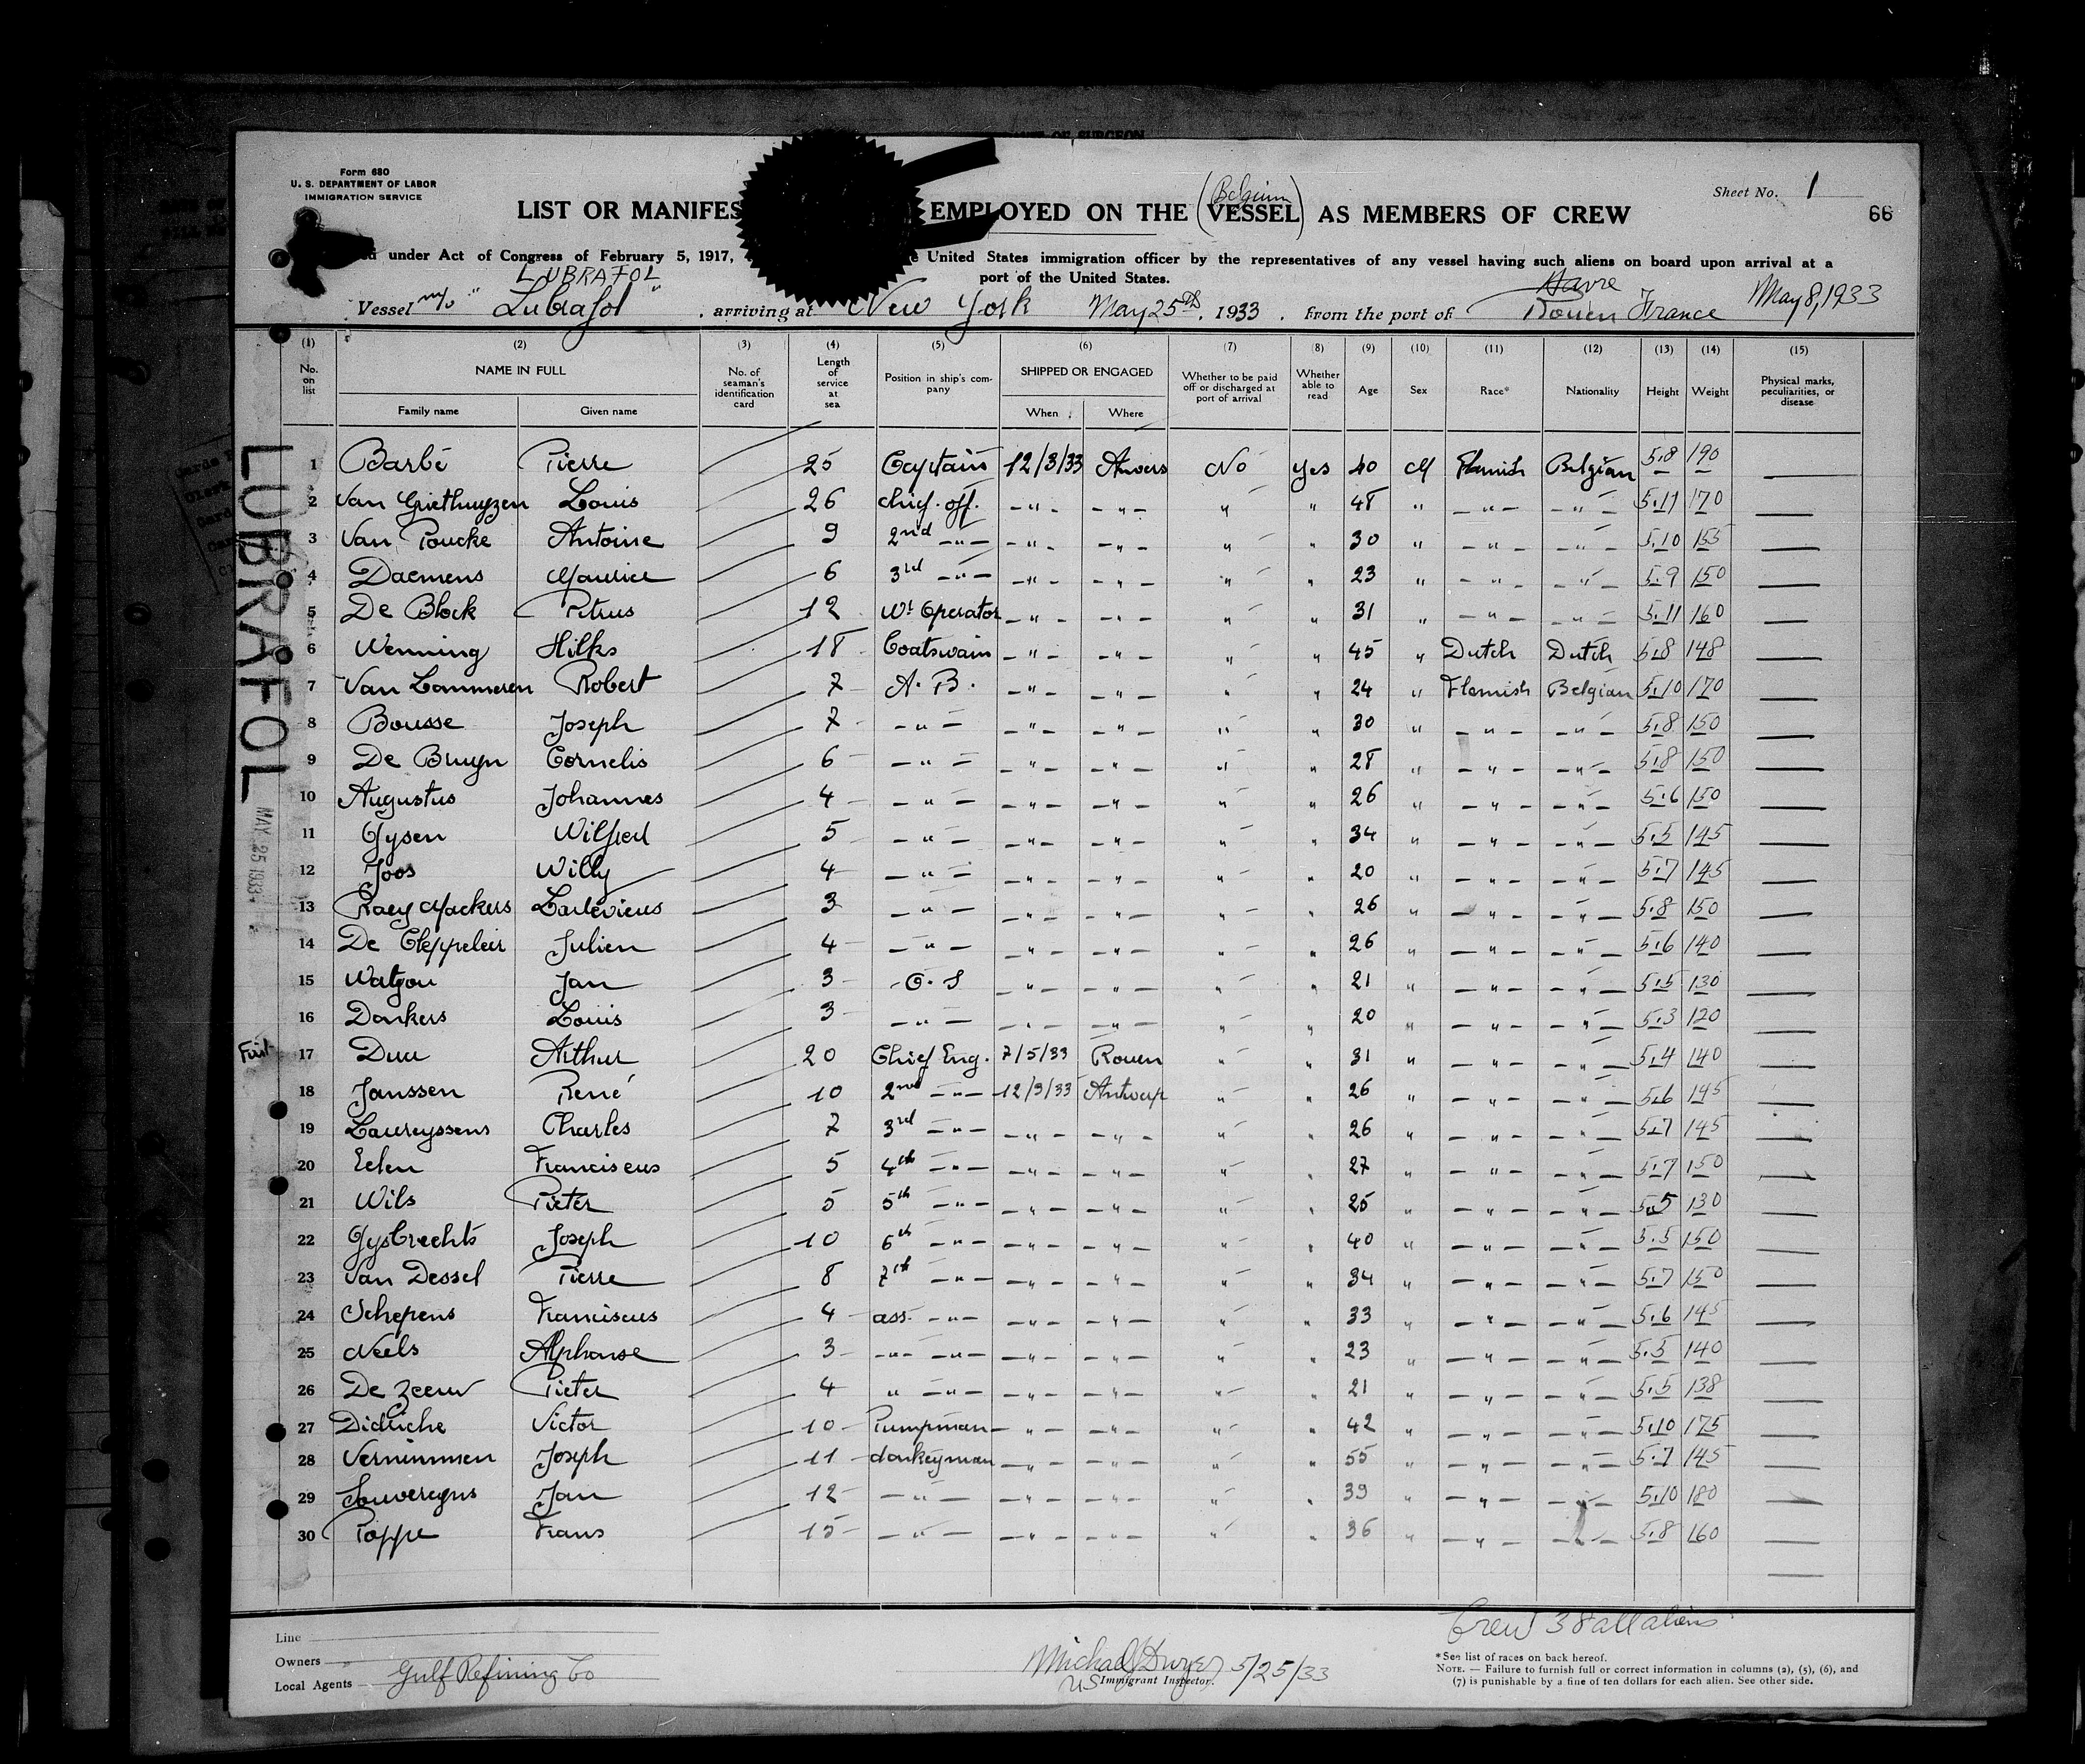 Form 680
U. S. DEPARTMENT OF LABOR
IMMIGRATION SERVICE
Sheet No. 1
66
(Belgium)
LIST OR MANIFES EMPLOYED ON THE VESSEL AS MEMBERS OF CREW
under Act of Congress of February 5, 1917, United States immigration officer by the representatives of any vessel having such aliens on board upon arrival at a
port of the United States.
LUBRAFOL Havre
Vessel m/v "Lubrafol" arriving at New York May 25th, 1933, from the port of Rouen France May 8, 1933
(1) (2) (3) (4) (5) (6) (7) (8) (9) (10) (11) (12) (13) (14) (15)
No. on list NAME IN FULL Family name Given name No. of seaman's identification card Length of service at sea Position in ship's company SHIPPED OR ENGAGED When Where Whether to be paid off or discharged at port of arrival Whether able to read Age Sex Race* Nationality Height Weight Physical marks, peculiarities, or disease
1 Barbé Pierre 25 Captain 12/3/33 Anvers No yes 40 M Flemish Belgian 5.8 190 —
2 Van Griethuyzen Louis 26 chief. off. -"- -"- " " 48 " -"- -"- 5.11 170 —
3 Van Poucke Antoine 9 2nd -"- -"- -"- " " 30 " -"- -"- 5.10 155 —
4 Daemens Maurice 6 3rd -"- -"- -"- " " 23 " -"- -"- 5.9 150 —
5 De Block Petrus 12 Ws Operator -"- -"- " " 31 " -"- -"- 5.11 160 —
6 Wenning Hilks 18 Boatswain -"- -"- " " 45 " Dutch Dutch 5.8 148 —
7 Van Lommeren Robert 7 A. B. -"- -"- " " 24 " Flemish Belgian 5.10 170 —
8 Bousse Joseph 7 -"- -"- -"- " " 30 " -"- -"- 5.8 150 —
9 De Bruyn Cornelis 6 -"- -"- -"- " " 28 " -"- -"- 5.8 150 —
10 Augustus Johannes 4 -"- -"- -"- " " 26 " -"- -"- 5.6 150 —
11 Gysen Wilfried 5 -"- -"- -"- " " 34 " -"- -"- 5.5 145 —
12 Joos Willy 4 -"- -"- -"- " " 20 " -"- -"- 5.7 145 —
13 Raeymackers 3 -"- -"- -"- " " 26 " -"- -"- 5.8 150 —
14 De Cleppeleir Julien 4 -"- -"- -"- " " 26 " -"- -"- 5.6 140 —
15 Jan 3 O. S -"- -"- " " 21 " -"- -"- 5.5 130 —
16 Donkers Louis 3 -"- -"- -"- " " 20 " -"- -"- 5.3 120 —
First 17 Arthur 20 Chief Eng. 7/5/33 Rouen " " 31 " -"- -"- 5.4 140 —
18 Janssen René 10 2nd -"- 12/3/33 Antwerp " " 26 " -"- -"- 5.6 145 —
19 Laureyssens Charles 7 3rd -"- -"- -"- " " 26 " -"- -"- 5.7 145 —
20 Eelen Franciscus 5 4th -"- -"- -"- " " 27 " -"- -"- 5.7 150 —
21 Wils Pieter 5 5th -"- -"- -"- " " 25 " -"- -"- 5.5 130 —
22 Gysbrechts Joseph 10 6th -"- -"- -"- " " 40 " -"- -"- 5.5 150 —
23 Van Dessel Pierre 8 7th -"- -"- -"- " " 34 " -"- -"- 5.7 150 —
24 Schepens Franciscus 4 ass. -"- -"- -"- " " 33 " -"- -"- 5.6 145 —
25 Neels Alphonse 3 -"- -"- -"- -"- " " 23 " -"- -"- 5.5 140 —
26 De Zeeuw Pieter 4 " -"- -"- -"- " " 21 " -"- -"- 5.5 138 —
27 Didriche Victor 10 Pumpman -"- -"- " " 42 " -"- -"- 5.10 175 —
28 Vernimmen Joseph 11 donkeyman -"- -"- " " 55 " -"- -"- 5.7 145 —
29 Souvereyns Jan 12 -"- -"- -"- " " 39 " -"- -"- 5.10 180 —
30 Poppe Frans 15 -"- -"- -"- " " 36 " -"- -"- 5.8 160 —
LUBRAFOL
MAY 25 1933
Crew 38 all aliens
Line
Owners
Local Agents Gulf Refining Co
Michael J Dwyer 5/25/33
US Immigrant Inspector.
*See list of races on back hereof.
NOTE. — Failure to furnish full or correct information in columns (2), (5), (6), and
(7) is punishable by a fine of ten dollars for each alien. See other side.